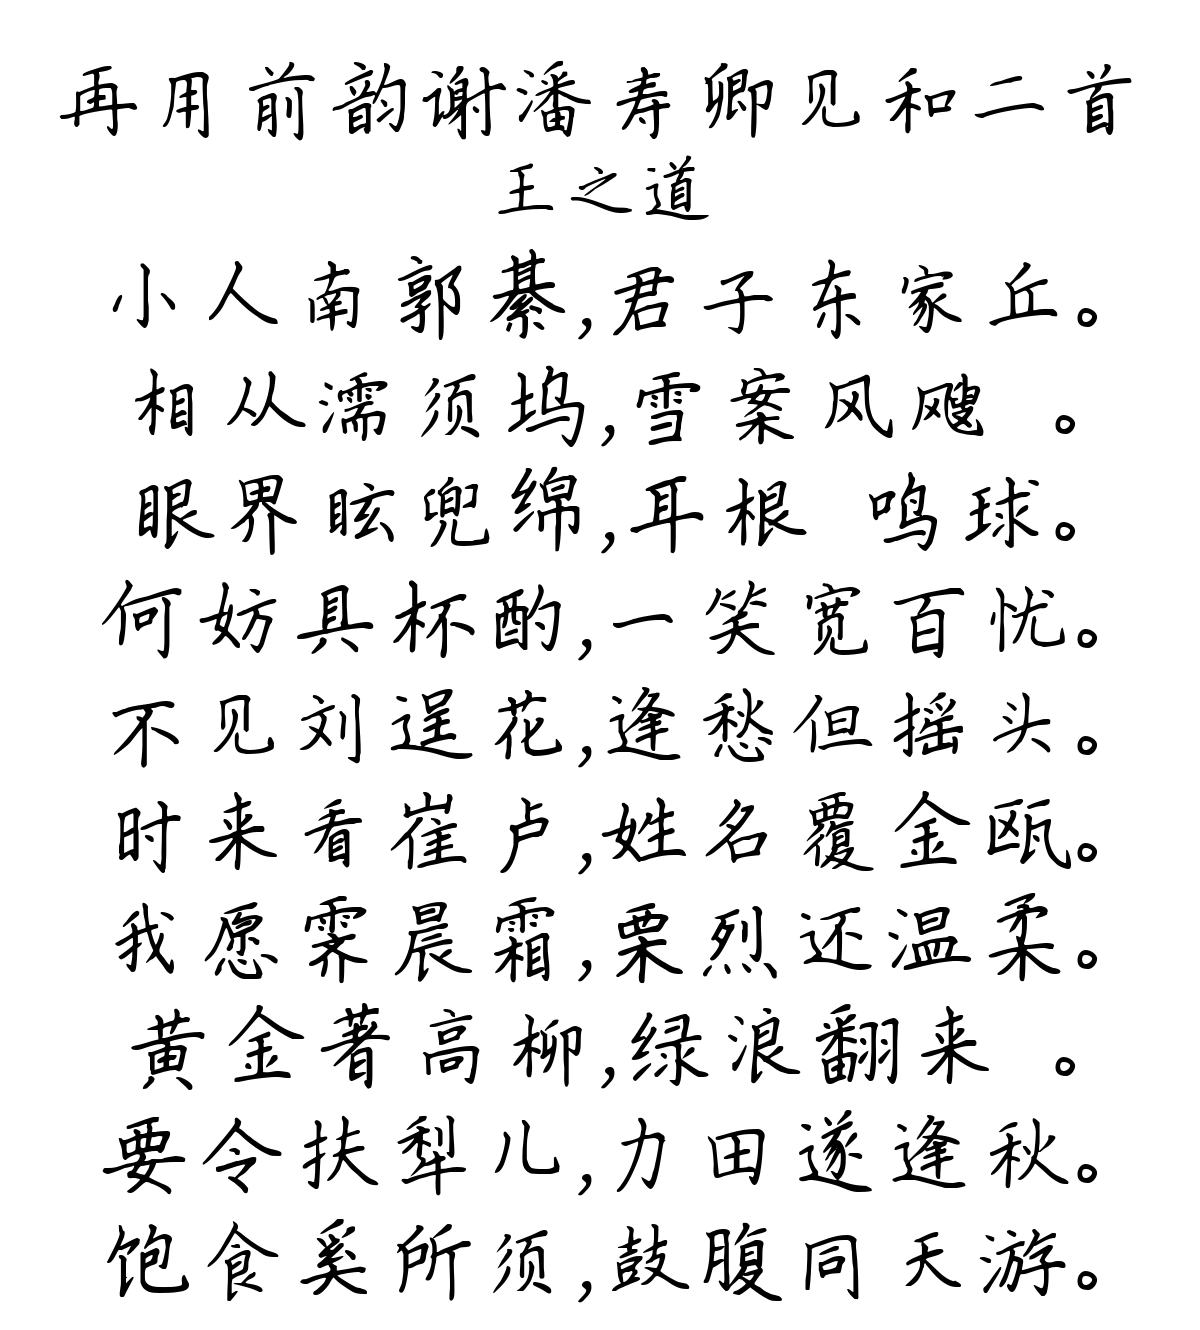 再用前韵谢潘寿卿见和二首
王之道
小人南郭綦,君子东家丘。
相从濡须坞,雪案风飕 。
眼界眩兜绵,耳根 鸣球。
何妨具杯酌,一笑宽百忧。
不见刘逞花,逢愁但摇头。
时来看崔卢,姓名覆金瓯。
我愿霁晨霜,栗烈还温柔。
黄金著高柳,绿浪翻来 。
要令扶犁儿,力田遂逢秋。
饱食奚所须,鼓腹同天游。